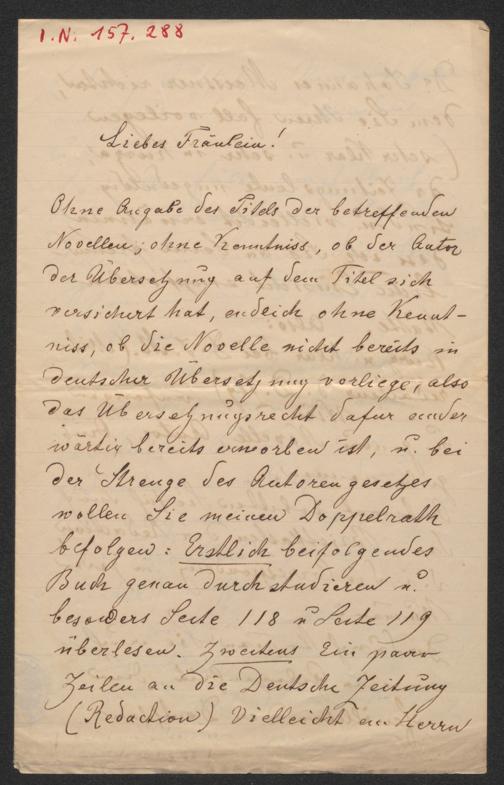 I.N. 157.288
Liebes Fräulein!
Ohne Angabe des Titels der betreffenden
Novellen; ohne Kenntniss, ob der Autor
der Übersetzung auf dem Titel sich
versichert hat, endlich ohne Kennt-
niss, ob die Novelle nicht bereits in
deutscher Übersetzung vorliege, also
das Übersetzungsrecht dafür ander
wärtig bereits erworben ist, u. bei
der Strenge des Autorengesetzes
wollen Sie meinen Doppelrath
befolgen: Erstlich beifolgendes
Buch genau durchstudieren u.
besonders Seite 118 u Seite 119
überlesen. Zweitens Ein paar
Zeilen an die Deutsche Zeitung
(Redaction) Vielleicht an Herrn